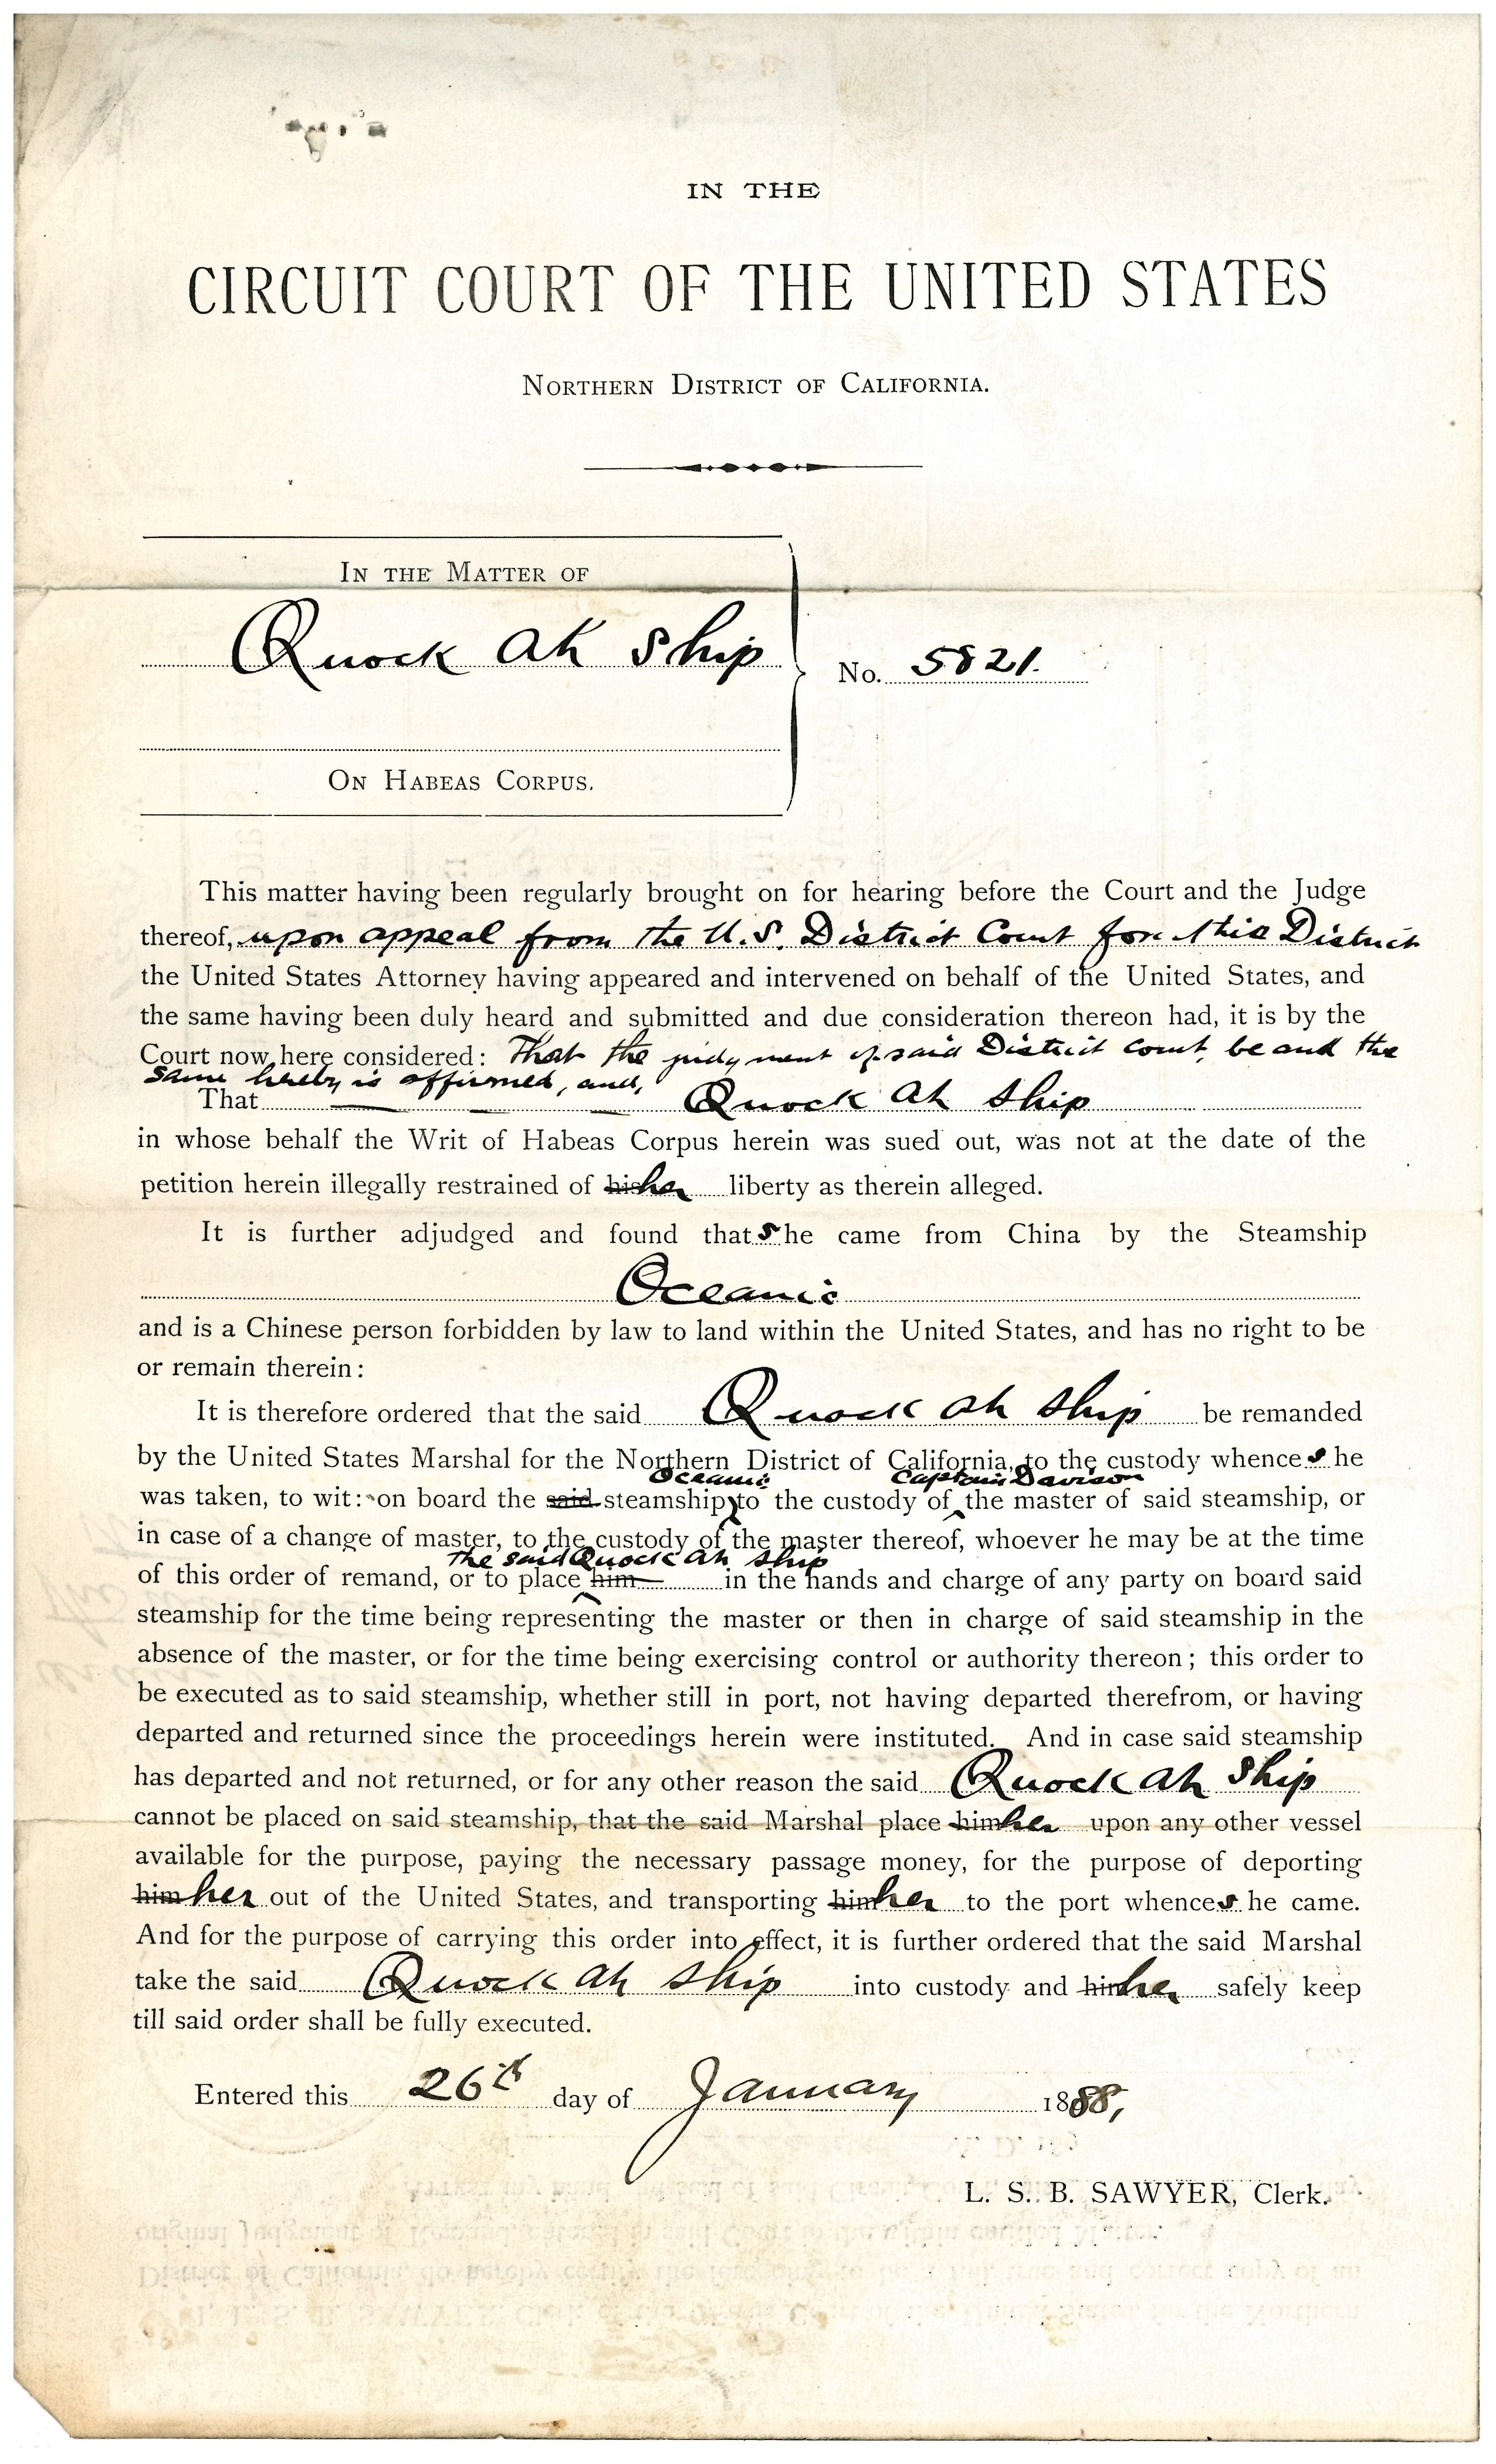 IN THE
CIRCUIT COURT OF THE UNITED STATES
NORTHERN DISTRICT OF CALIFORNIA.
IN THE MATTER OF
Quock Ah Ship
No. 5821.
ON HABEAS CORPUS.
This matter having been regularly brought on for hearing before the Court and the Judge
thereof, upon appeal from the U.S. District Court for this District
the United States Attorney having appeared and intervened on behalf of the United States, and
the same having been duly heard and submitted and due consideration thereon had, it is by the
Court now here considered: That the judgment of said District Court, be and the
same hereby is affirmed, and,
That Quock Ah Ship
in whose behalf the Writ of Habeas Corpus herein was sued out, was not at the date of the
petition herein illegally restrained of his her liberty as therein alleged.
It is further adjudged and found that s he came from China by the Steamship
Oceanic
and is a Chinese person forbidden by law to land within the United States, and has no right to be
or remain therein:
It is therefore ordered that the said Quock Ah Ship be remanded
by the United States Marshal for the Northern District of California, to the custody whence s he
Oceanic Captain Davison
was taken, to wit: on board the said steamship, to the custody of the master of said steamship, or
in case of a change of master, to the custody of the master thereof, whoever he may be at the time
the said Quock Ah Ship
of this order of remand, or to place him in the hands and charge of any party on board said
steamship for the time being representing the master or then in charge of said steamship in the
absence of the master, or for the time being exercising control or authority thereon; this order to
be executed as to said steamship, whether still in port, not having departed therefrom, or having
departed and returned since the proceedings herein were instituted. And in case said steamship
has departed and not returned, or for any other reason the said Quock Ah Ship
cannot be placed on said steamship, that the said Marshal place him her upon any other vessel
available for the purpose, paying the necessary passage money, for the purpose of deporting
him her out of the United States, and transporting him her to the port whence s he came.
And for the purpose of carrying this order into effect, it is further ordered that the said Marshal
take the said Quock Ah Ship into custody and him her safely keep
till said order shall be fully executed.
Entered this 26th day of January 1888,
L. S. B. SAWYER, Clerk.